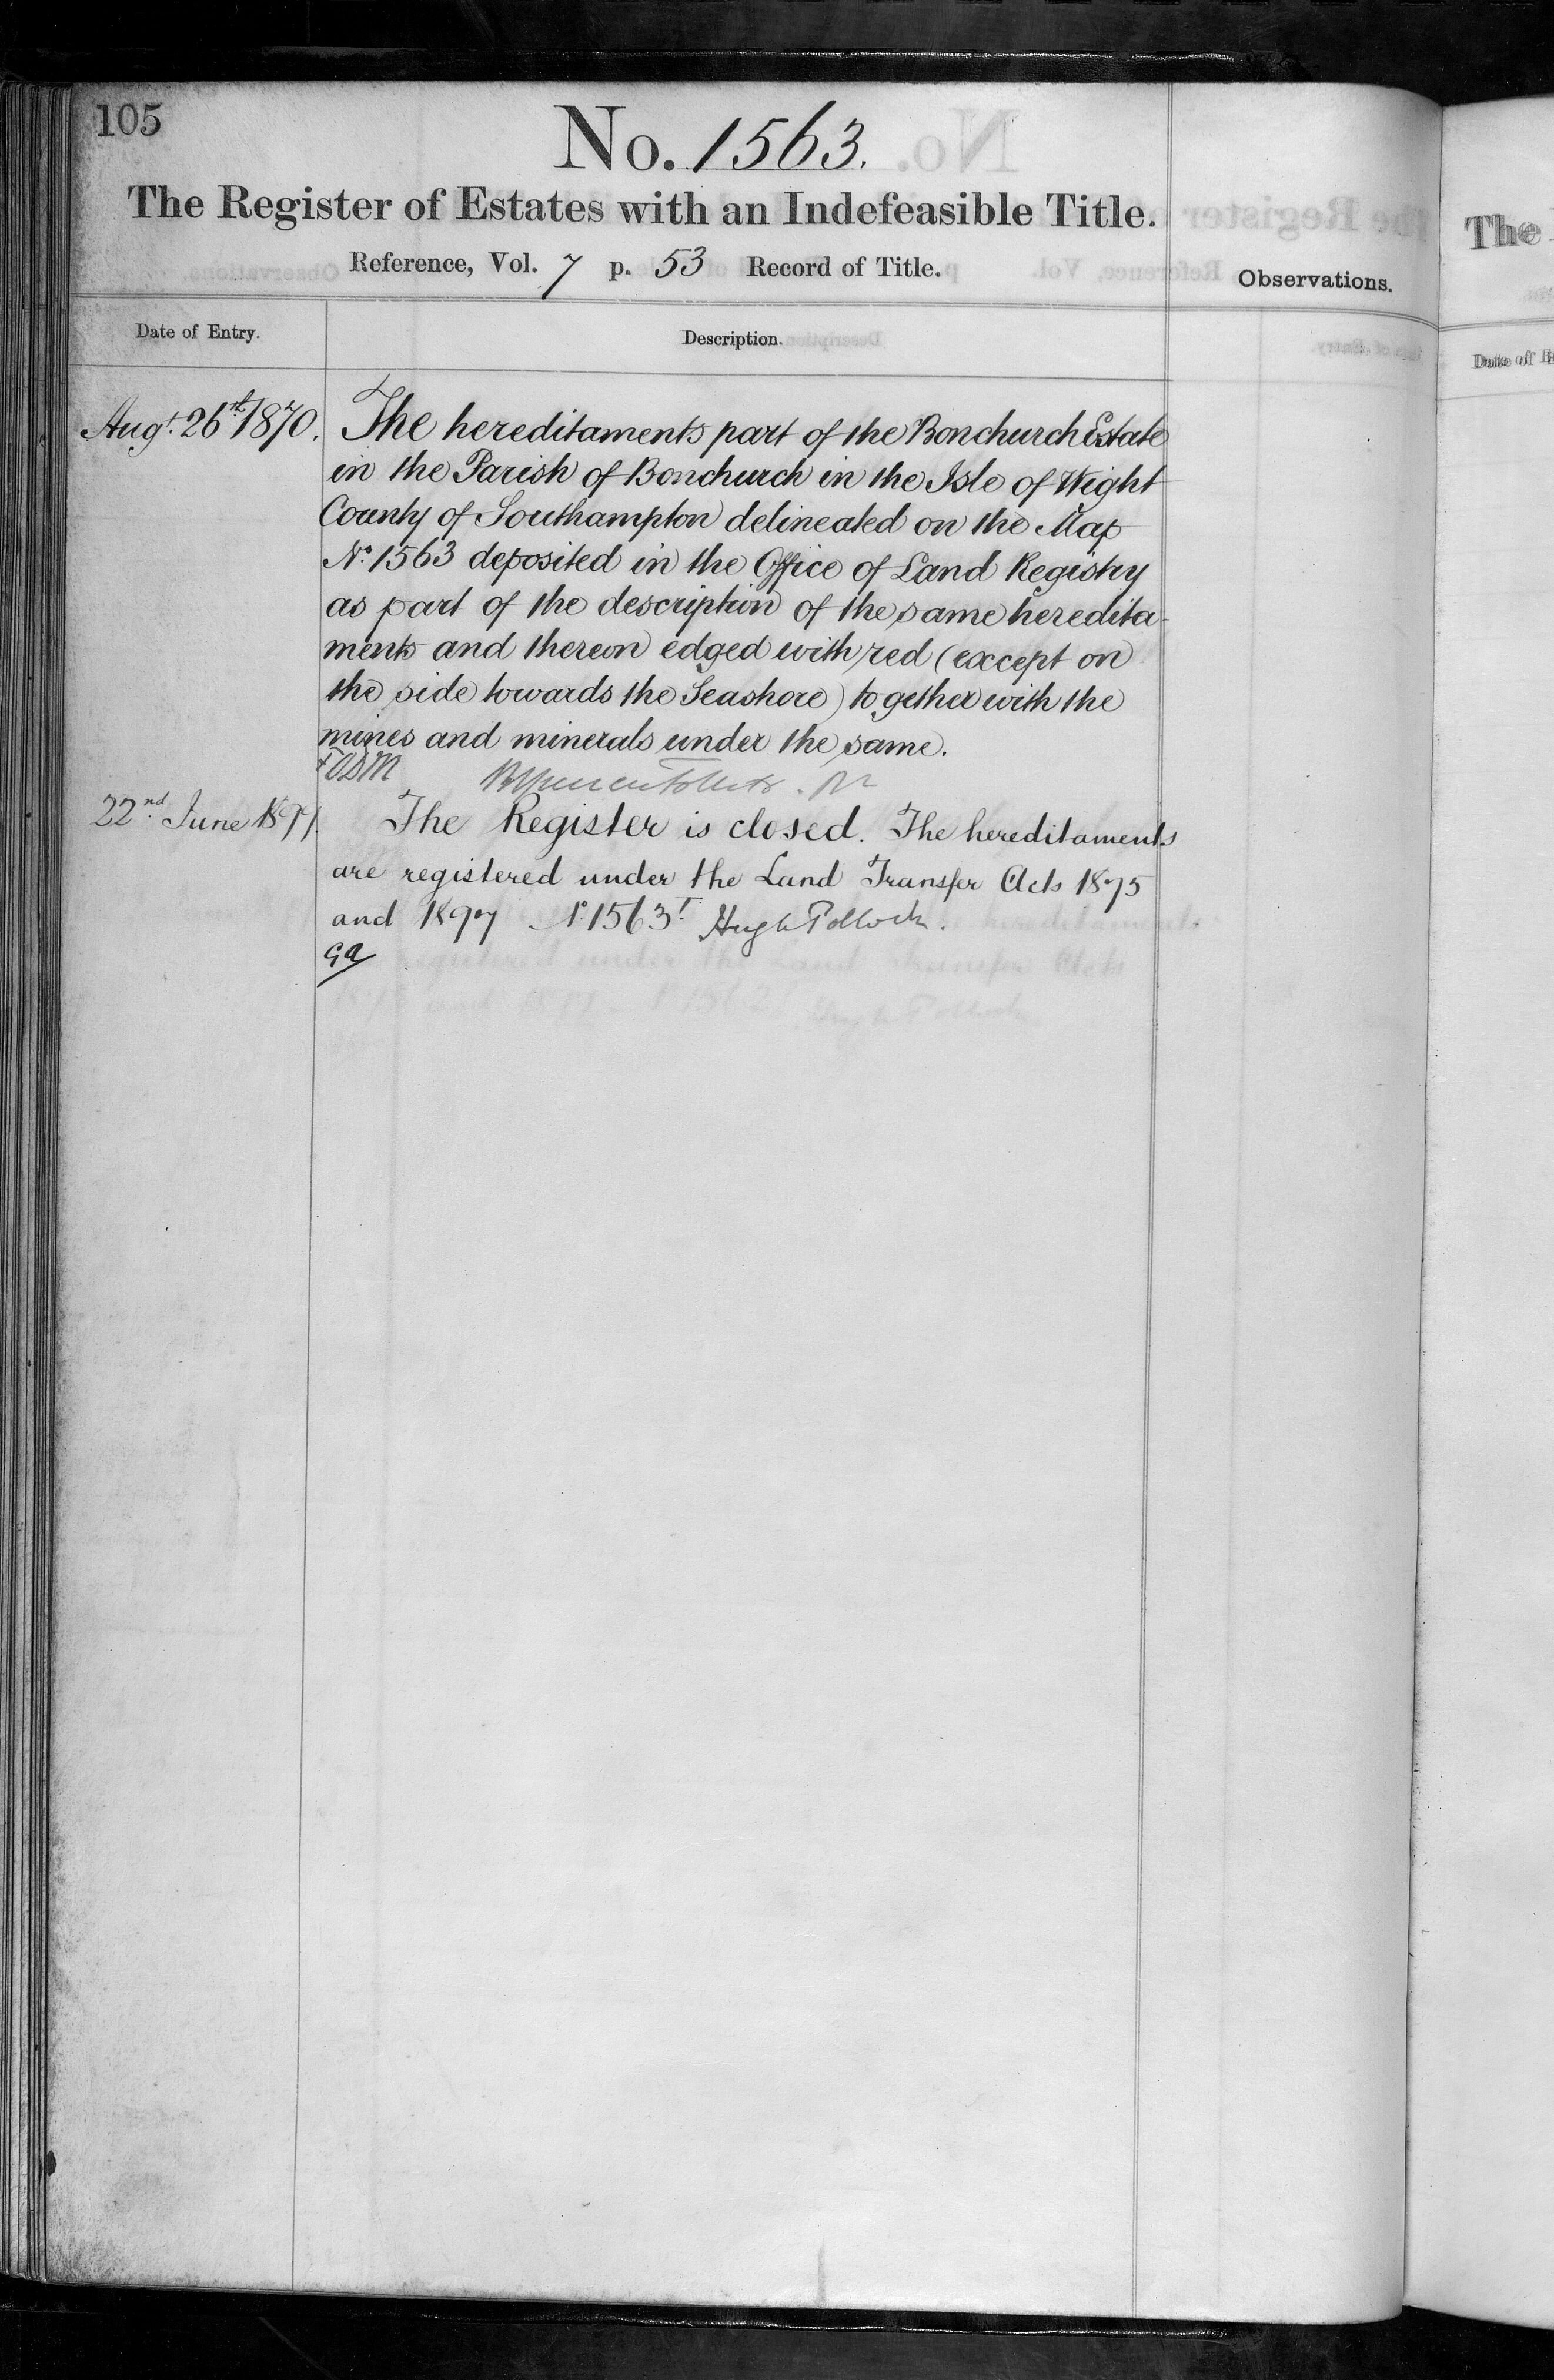 105
No. 1563.
The Register of Estates with an Indefeasible Title.
Reference, Vol. 7 p. 53 Record of Title.
Observations.
Date of Entry.
Description.
Augt. 26th 1870. The hereditaments part of the Bonchurch Estate
in the Parish of Bonchurch in the Isle of Wight
County of Southampton delineated on the Map
No. 1563 deposited in the Office of Land Registry
as part of the description of the same heredita-
ments and thereon edged with red (except on
the side towards the Seashore) together with the
mines and minerals under the same.
22nd June
The Register is closed. The hereditaments
are registered under the Land Transfer Acts 1875
and 1897 No. 1563T. Hugh Pollock.
The
Date of